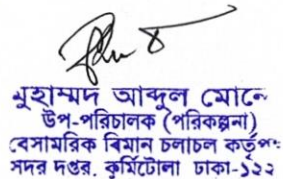 মুহাম্মদ আব্দুল মোনে
উপ-পরিচালক (পরিকল্পনা)
বেসামরিক বিমান চলাচল কর্তৃপ
সদর দপ্তর, কুর্মিটোলা ঢাকা-১২২